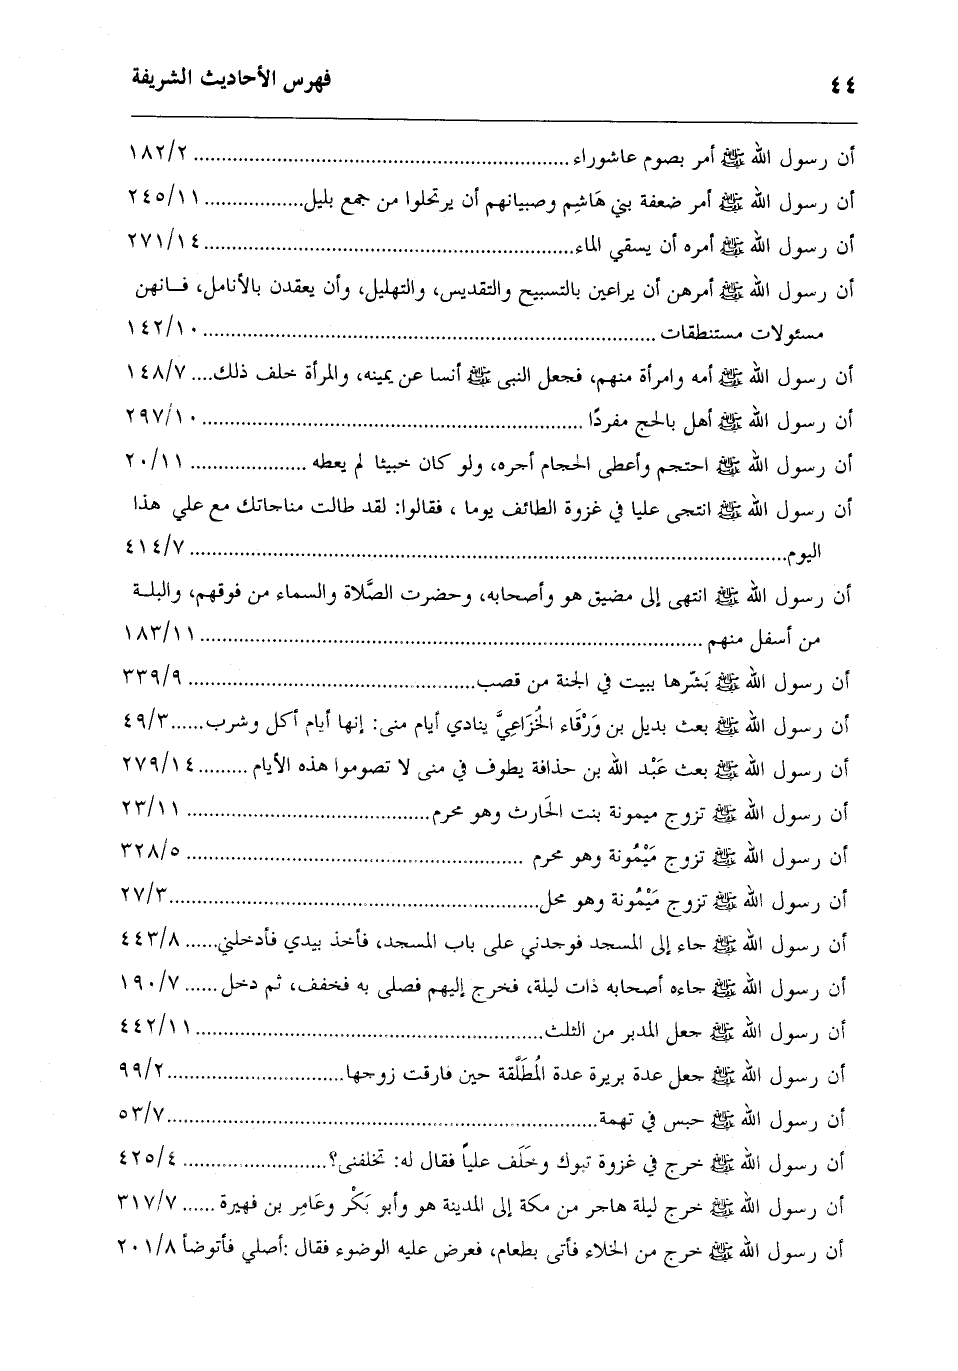 ٤٤ فهرس الأحاديث الشريفة
أن رسول الله ﷺ أمر بصوم عاشوراء ........ ١٨٢/٢
أن رسول الله ﷺ أمر ضعفة بني هَاشِم وصبيانهم أن يرتحلوا من جمع بليل........ ٢٤٥/١١
أن رسول الله ﷺ أمره أن يسقي الماء........ ٢٧١/١٤
أن رسول الله ﷺ أمرهن أن يراعين بالتسبيح والتقديس، والتهليل، وأن يعقدن بالأنامل، فانهن
مسئولات مستنطقات ........ ١٤٢/١٠
أن رسول الله ﷺ أمه وامرأة منهم، فجعل النبى ﷺ أنسا عن يمينه، والمرأة خلف ذلك.... ١٤٨/٧
أن رسول الله ﷺ أهل بالحج مفردًا ........ ٢٩٧/١٠
أن رسول الله ﷺ احتجم وأعطى الحجام أجره، ولو كان خبيثا لم يعطه ........ ٢٠/١١
أن رسول الله ﷺ انتجى عليا في غزوة الطائف يوما ، فقالوا: لقد طالت مناجاتك مع علي هذا
اليوم........ ٤١٤/٧
أن رسول الله ﷺ انتهى إلى مضيق هو وأصحابه، وحضرت الصَّلاة والسماء من فوقهم، والبلة
من أسفل منهم ........ ١٨٣/١١
أن رسول الله ﷺ بَشّرها ببيت في الجنة من قصب........ ٣٣٩/٩
أن رسول الله ﷺ بعث بديل بن وَرْقَاء الخُزَاعِيَّ ينادي أيام منى: إنها أيام أكل وشرب......٤٩/٣
أن رسول الله ﷺ بعث عَبْد الله بن حذافة يطوف في منى لا تصوموا هذه الأيام .........٢٧٩/١٤
أن رسول الله ﷺ تزوج ميمونة بنت الحَارث وهو محرم........ ٢٣/١١
أن رسول الله ﷺ تزوج مَيْمُونة وهو محرم ........ ٣٢٨/٥
أن رسول الله ﷺ تزوج مَيْمُونة وهو محل........٢٧/٣
أن رسول الله ﷺ جاء إلى المسجد فوجدني على باب المسجد، فأخذ بيدي فأدخلني...... ٤٤٣/٨
أن رسول الله ﷺ جاءه أصحابه ذات ليلة، فخرج إليهم فصلى به فخفف، ثم دخل...... ١٩٠/٧
أن رسول الله ﷺ جعل المدبر من الثلث........٤٤٢/١١
أن رسول الله ﷺ جعل عدة بريرة عدة المُطَلَّقة حين فارقت زوجها........٩٩/٢
أن رسول الله ﷺ حبس في تهمة........٥٣/٧
أن رسول الله ﷺ خرج في غزوة تبوك وخَلَف علياً فقال له: تخلفنى؟........ ٤٢٥/٤
أن رسول الله ﷺ خرج ليلة هاجر من مكة إلى المدينة هو وأبو بَكْر وعَامِر بن فهيرة ...... ٣١٧/٧
أن رسول الله ﷺ خرج من الخلاء فأتى بطعام، فعرض عليه الوضوء فقال :أصلي فأتوضأ ٢٠١/٨